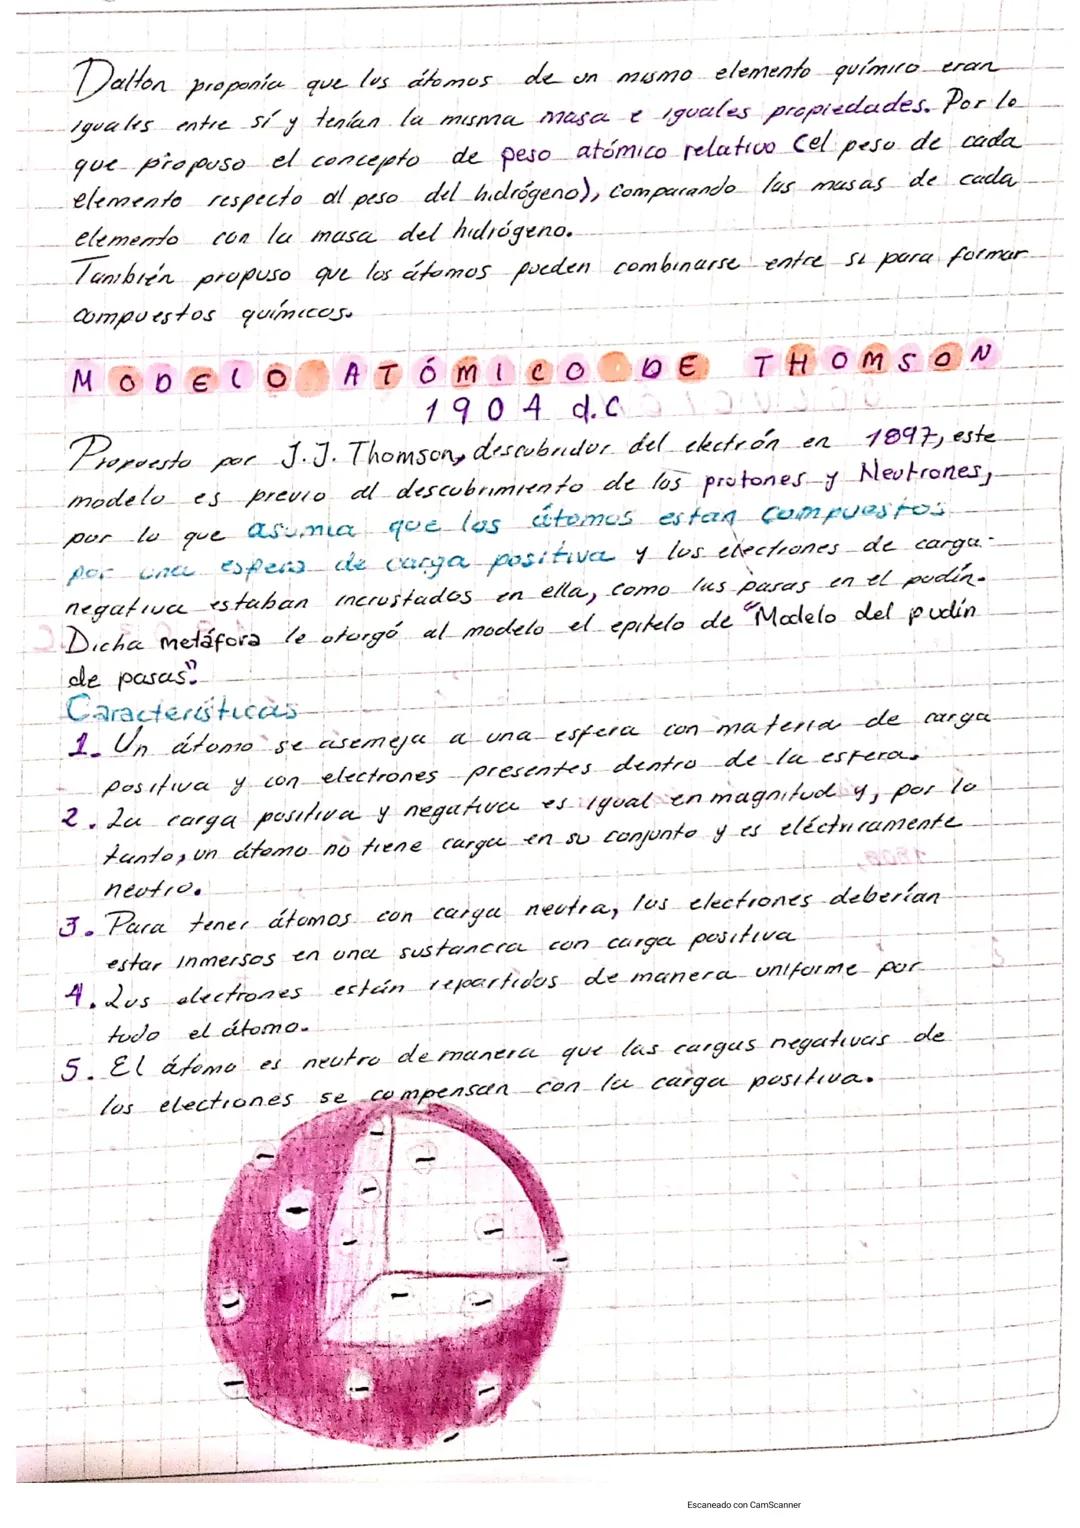 Dalton proponía que los átomos de un mismo elemento químico eran
iguales entre sí y tenían la misma masa e iguales propiedades. Por lo
que propuso el concepto de peso atómico relativo (el peso de cada
elemento respecto al peso del hidrógeno), comparando las masas de cada
elemento con la masa del hidrógeno.
También propuso que los átomos pueden combinarse entre si para formar
compuestos químicos.
MODELO ATÓMICO DE THOMSON
1904 d.C
Propuesto por J.J. Thomson, descubridor del electrón en 1897, este
modelo es previo al descubrimiento de los protones y Neutrones,
por lo que asumia que los átomos estan compuestos
por una esfera de carga positiva y los electrones de carga
negativa estaban incrustados en ella, como las pasas en el pudín.
Dicha metáfora le otorgó al modelo el epitelo de "Modelo del pudín
de pasas".
Características
1. Un átomo se asemeja a una esfera con materia de carga
positiva y con electrones presentes dentro de la esfera.
2. La carga positiva y negativa es igual en magnitud y, por lo
tanto, un átomo no tiene carga en su conjunto y es eléctricamente
neutro.
3. Para tener átomos con carga neutra, los electrones deberían
estar inmersos en una sustancia con carga positiva
4. Los electrones están repartidos de manera uniforme por
todo el átomo.
5. El átomo es neutro de manera que las cargas negativas de
los electrones se compensan con la carga positiva.
Escaneado con CamScanner